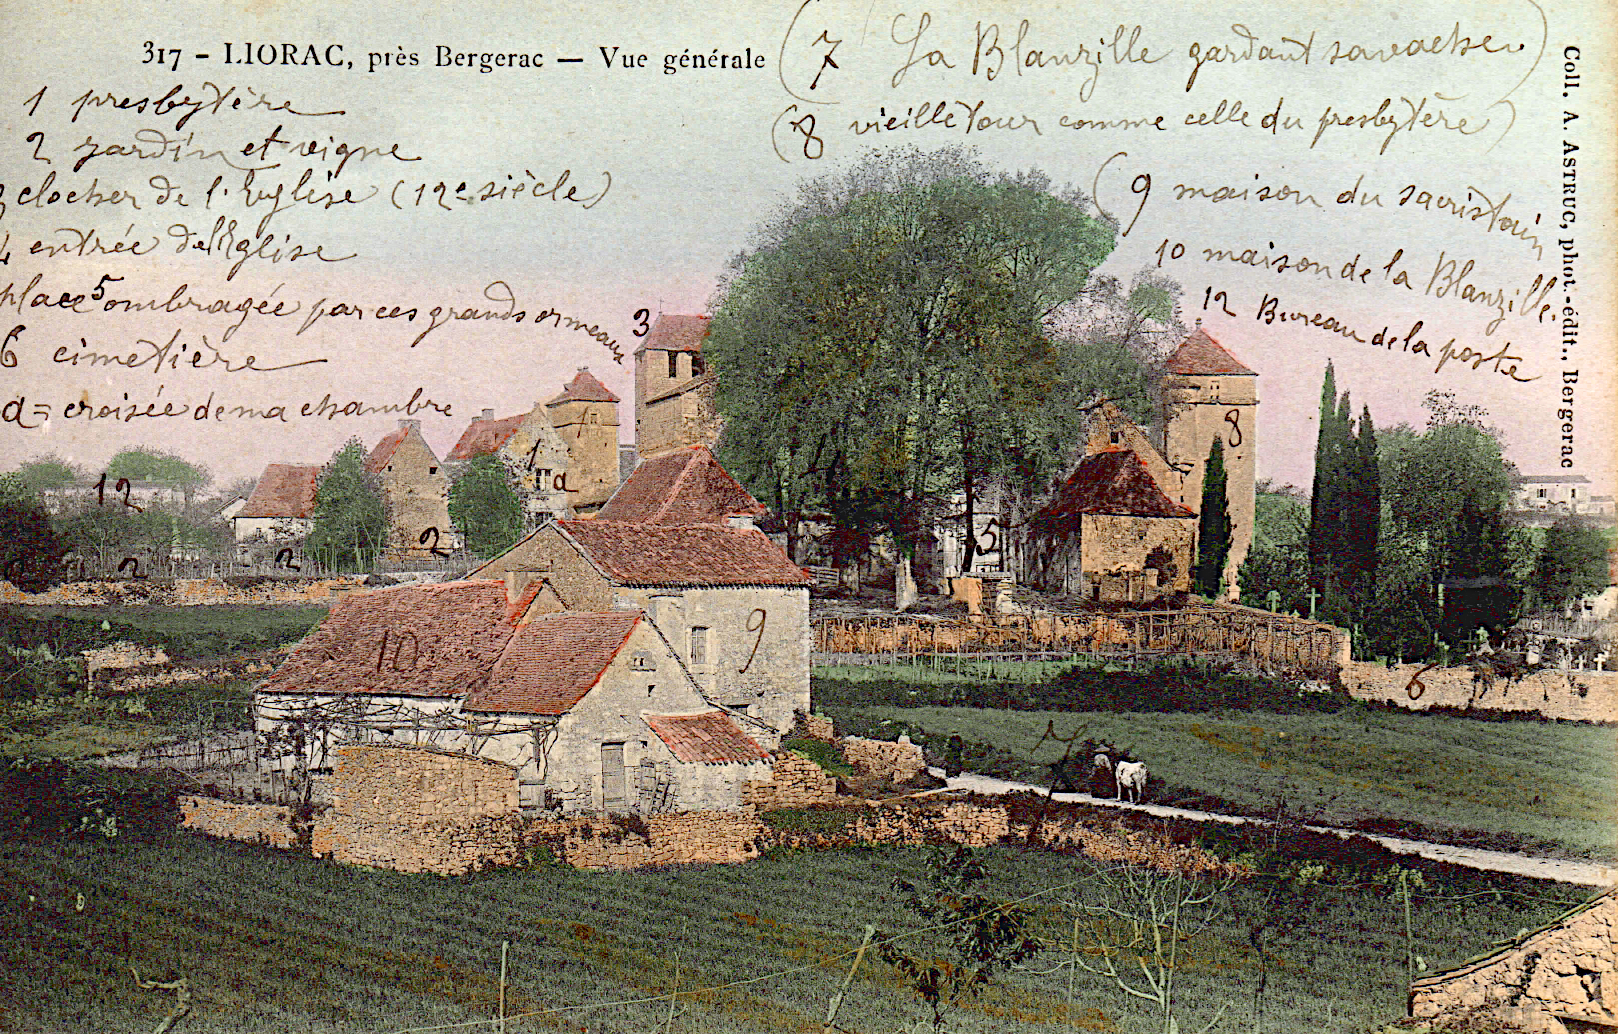 317 - LIORAC, près Bergerac — Vue générale
1 presbytère
2 jardin et vigne
3 clocher de l'Eglise (12e siècle)
4 entrée de l'Eglise
place 5 ombragée par ces grands ormeaux
6 cimetière
a = croisée de ma chambre
(7 La Blanzille gardant sa vache)
(8 vieille tour comme celle du presbytère)
(9 maison du sacristain
10 maison de la Blanzille.
12 Bureau de la poste
Coll. A. ASTRUC, phot.-édit., Bergerac
3
1
8
1
a
12
5
2
2
2
9
10
6
7